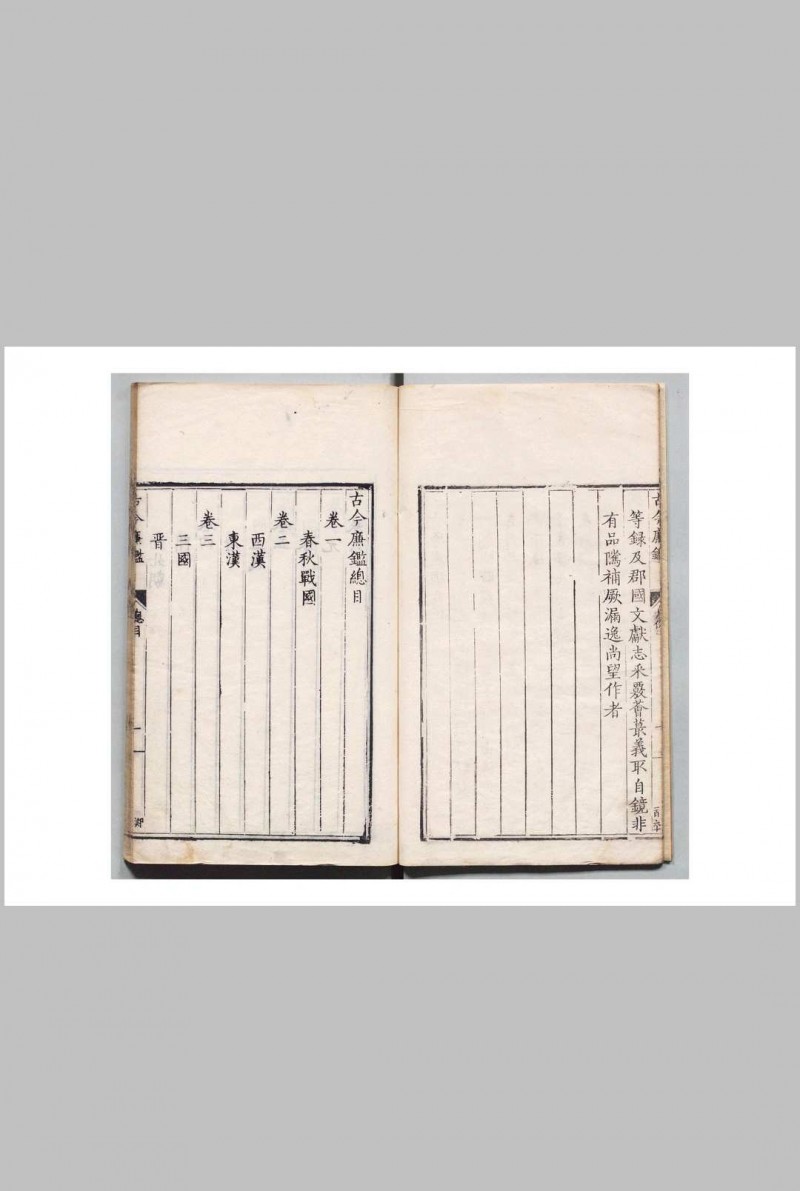 等録及郡國文獻志釆覈薈蕞義取自鏡非
有品隲補厥漏逸尚望作者
古今廉鑑總目
卷一
春秋戰國
卷二
西漢
東漢
卷三
三國
晋
古今廉鑑
總目